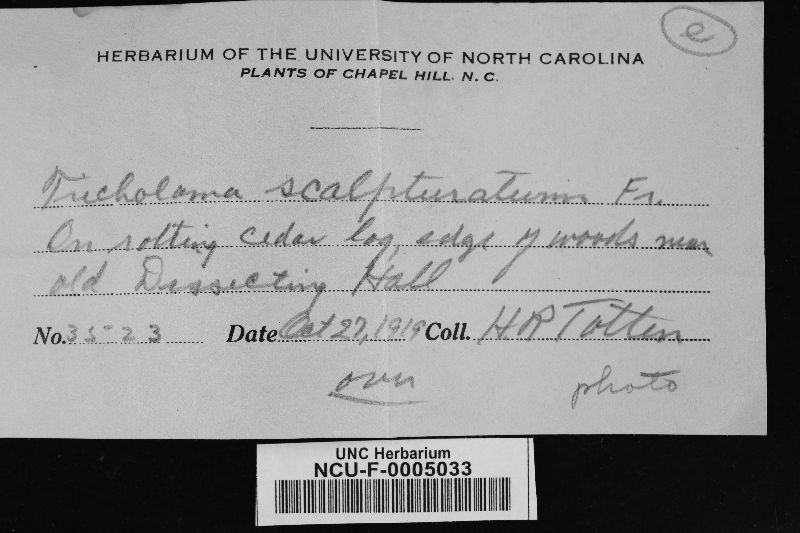 e
HERBARIUM OF THE UNIVERSITY OF NORTH CAROLINA
PLANTS OF CHAPEL HILL. N. C.
Tricholoma scalpturatum Fr.
On rotting cedar log, edge of woods near
old Dissecting Hall
No. 3523 Date Oct 27, 1919 Coll. H.R. Totten
over photo
UNC Herbarium
NCU-F-0005033